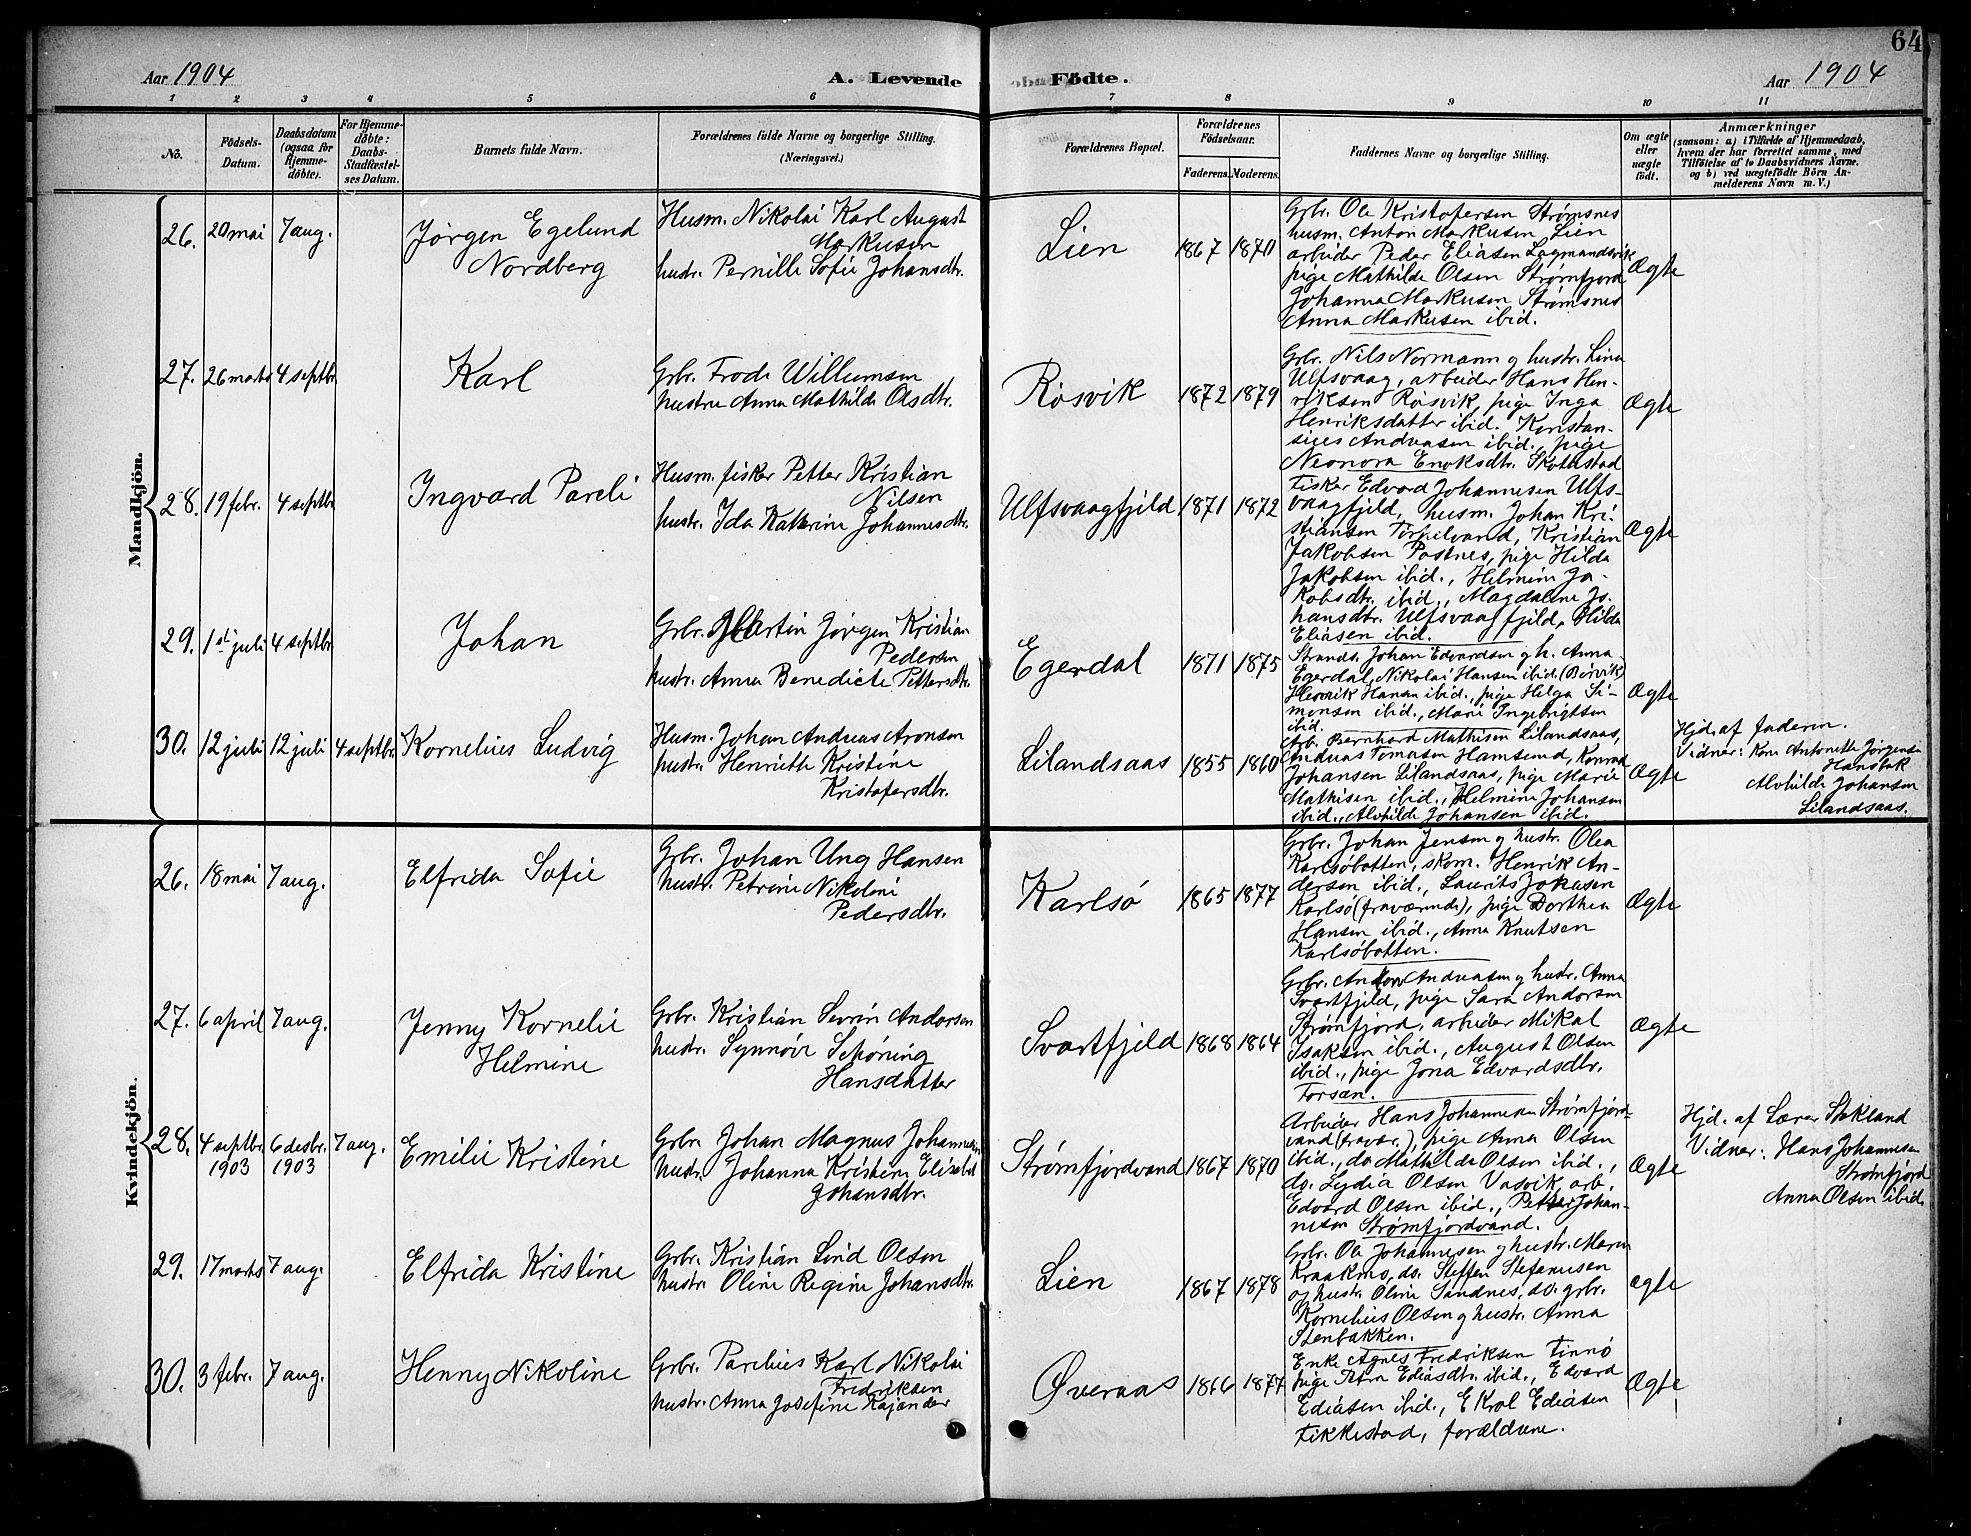 64
Aar 1904
A. Levende Födte.
Aar 1904
1 2 3 4 5 6 7 8 9 10 11
No.
Födsels-
Datum.
Daabsdatum
(ogsaa for
Hjemme-
döbte).
For Hjemme-
döbte:
Daabs-
Stadfæstel-
ses Datum.
Barnets fulde Navn.
Forældrenes fulde Navne og borgerlige Stilling.
(Næringsvei.)
Forældrenes Bopæl.
Forældrenes
Födselsaar.
Faderens.
Moderens.
Faddernes Navne og borgerlige Stilling.
Om ægte
eller
uægte
født.
Anmærkninger
(saasom: a) i Tilfælde af Hjemmedaab,
hvem der har forrettet samme, med
Tilføielse af to Daabsvidners Navne.
og b) ved uægtefödte Börn An-
melderens Navn m. V.)
Mandkjön.
26. 20 mai 7 aug.
Jørgen Egelund
Nordberg
Husm. Nikolai Karl August
Markusen
hustr. Pernille Sofie Johansdtr.
Lien 1867 1870
Grbr. Ole Kristofersen Strømsnes
husm. Anton Markusen Lien
arbeider Peder Eliasen Lagmandsvik
pige Mathilde Olsen Strømfjord
Johanna Markusen Strømsnes
Anna Markusen ibid.
Ægte
27. 26 marts 4 septbr.
Karl
Grbr. Frode Willumsen
hustru Anna Mathilde Olsdtr.
Røsvik 1872 1879
Grbr. Nils Normann g hustr. Lina
Ulfsvaag, arbeider Hans Hen-
riksen Røsvik, pige Inga
Henriksdatter ibid. Konstan-
Andreasen ibid., pige
Neonora Enoksdtr. Skotestad
Ægte
28. 19 febr. 4 septbr.
Ingvard Pareli
Husm. fisker Petter Kristian
Nilsen
hustr. Ida Kathrine Johannesdtr.
Ulfsvaagfjeld 1871 1872
Fisker Edvard Johannesen Ulfs-
vaagfjeld, husm. Johan Kri-
stiansen Tørpilvand, Kristian
Jakobsen Postnes, pige Hilda
Jakobsen ibid., Helmine Ja-
kobsdtr. ibid., Magdalene Jo-
hansdtr. Ulfsvaagfjeld, Hilda
Eliasen ibid.
Ægte
29. 1st juli 4 septbr.
Johan
Grbr. Martin Jørgen Kristian
Pedersen
hustr. Anna Benedicte Pettersdtr.
Egerdal 1871 1875
Strands. Johan Edvardsen g h. Anna
Egerdal, Nikolai Hansen ibid. (Børvik)
Henrik Hansen ibid., pige Helga Si-
monsen ibid., Marie Ingebrigtsen
ibid.
Ægte
30. 12 juli 12 juli 4 septbr.
Kornelius Ludvig
Husm. Johan Andreas Aronsen
hustr. Henriette Kristine
Kristofersdtr.
Lilandsaas 1855 1860
Arb. Bernhard Mathisen Lilandsaas,
Andreas Tomasen Hamsund, Konrad
Johansen Lilandsaas, pige Marie
Mathisen ibid., Helmine Johansen
ibid., Alvhilde Johansen ibid.
Ægte
Hjd. af faderen.
Vidner: Kone Antonette Jørgensen
Hansbak
Alvhilde Johansen
Lilandsaas.
Kvindekjön.
26. 18 mai 7 aug.
Elfrida Sofie
Grbr. Johan Ung Hansen
hustr. Petrine Nikoline
Pedersdtr.
Karlsø 1865 1877
Grbr. Johan Jensen g hustr. Olea
Karlsøbotten, skom. Henrik An-
dersen ibid., Laurits Johansen
Karlsø (fraværende), pige Dorthea
Hansen ibid., Anna Knutsen
Karlsøbotten.
Ægte
27. 6 april 7 aug.
Jenny Kornelie
Helmine
Grbr. Kristian Severin Andorsen
hustr. Synnøve Schøning
Hansdatter
Svartfjeld 1868 1864
Grbr. Anton Andreasen g hustr. Anna
Svartfjeld, pige Sara Andorsen
Strømfjord, arbeider Mikal
Isaksen ibid., August Olsen
ibid., pige Jona Edvardsdtr.
Forsan.
Ægte
28. 4 septbr. 1903 6 desbr. 1903 7 aug.
Emilie Kristine
Grbr. Johan Magnus Johannesen
hustr. Johanna Kristine Elisabet
Johansdtr.
Strømfjordvand 1867 1870
Arbeider Hans Johannesen Strømfjord-
vand (fravær.), pige Anna Olsen
ibid., do Mathilde Olsen ibid.,
do. Lydia Olsen Vasvik, arb.
Edvard Olsen ibid., Petter Johan-
nesen Strømfjordvand.
Ægte
Hjd. af Lærer Stokland
Vidner: Hans Johannesen
Strømfjord
Anna Olsen ibid.
29. 17 marts 7 aug.
Elfrida Kristine
Grbr. Kristian Lind Olsen
hustr. Oline Regine Johansdtr.
Lien 1867 1878
Grbr. Ole Johannesen g hustr. Maren
Kraakmo, do. Steffen Stefanusen
og hustr. Oline Sandnes, do. grbr.
Kornelius Olsen g hustr. Anna
Stenbakken.
Ægte
30. 3 febr. 7 aug.
Henny Nikoline
Grbr. Parelius Karl Nikolai
Fredriksen
hustr. Anna Josefine Kajander
Øveraas 1866 1877
Enke Agnes Fredriksen Finnø
pige Thora Ediasdtr. ibid., Edvard
Ediasen ibid., E Karl Ediasen
Fikkestad, forældrene.
Ægte